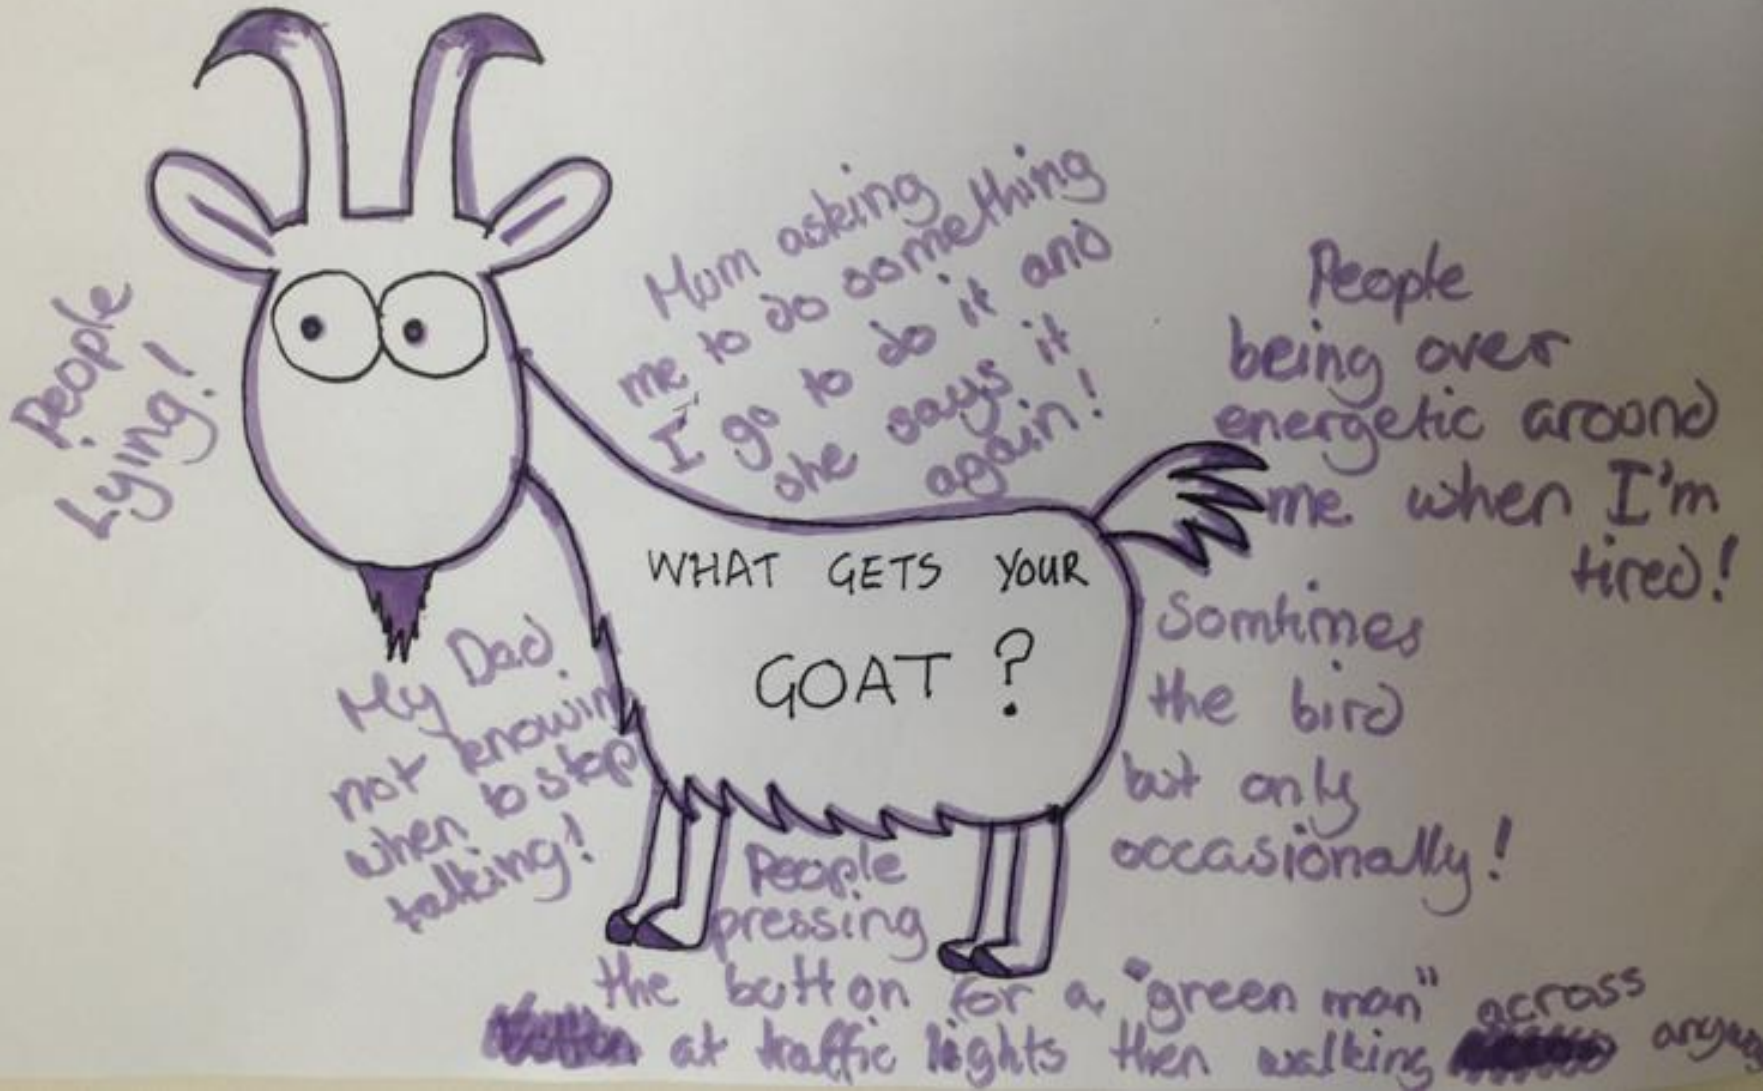 People
Lying!
Mum asking
me to do something
I go to do it and
she says it
again!
People
being over
energetic around
me when I'm
tired!
WHAT GETS YOUR
GOAT ?
My Dad
not knowing
when to stop
talking!
Somtimes
the bird
but only
occasionally!
People
pressing
the button for a "green man" across
at traffic lights then walking